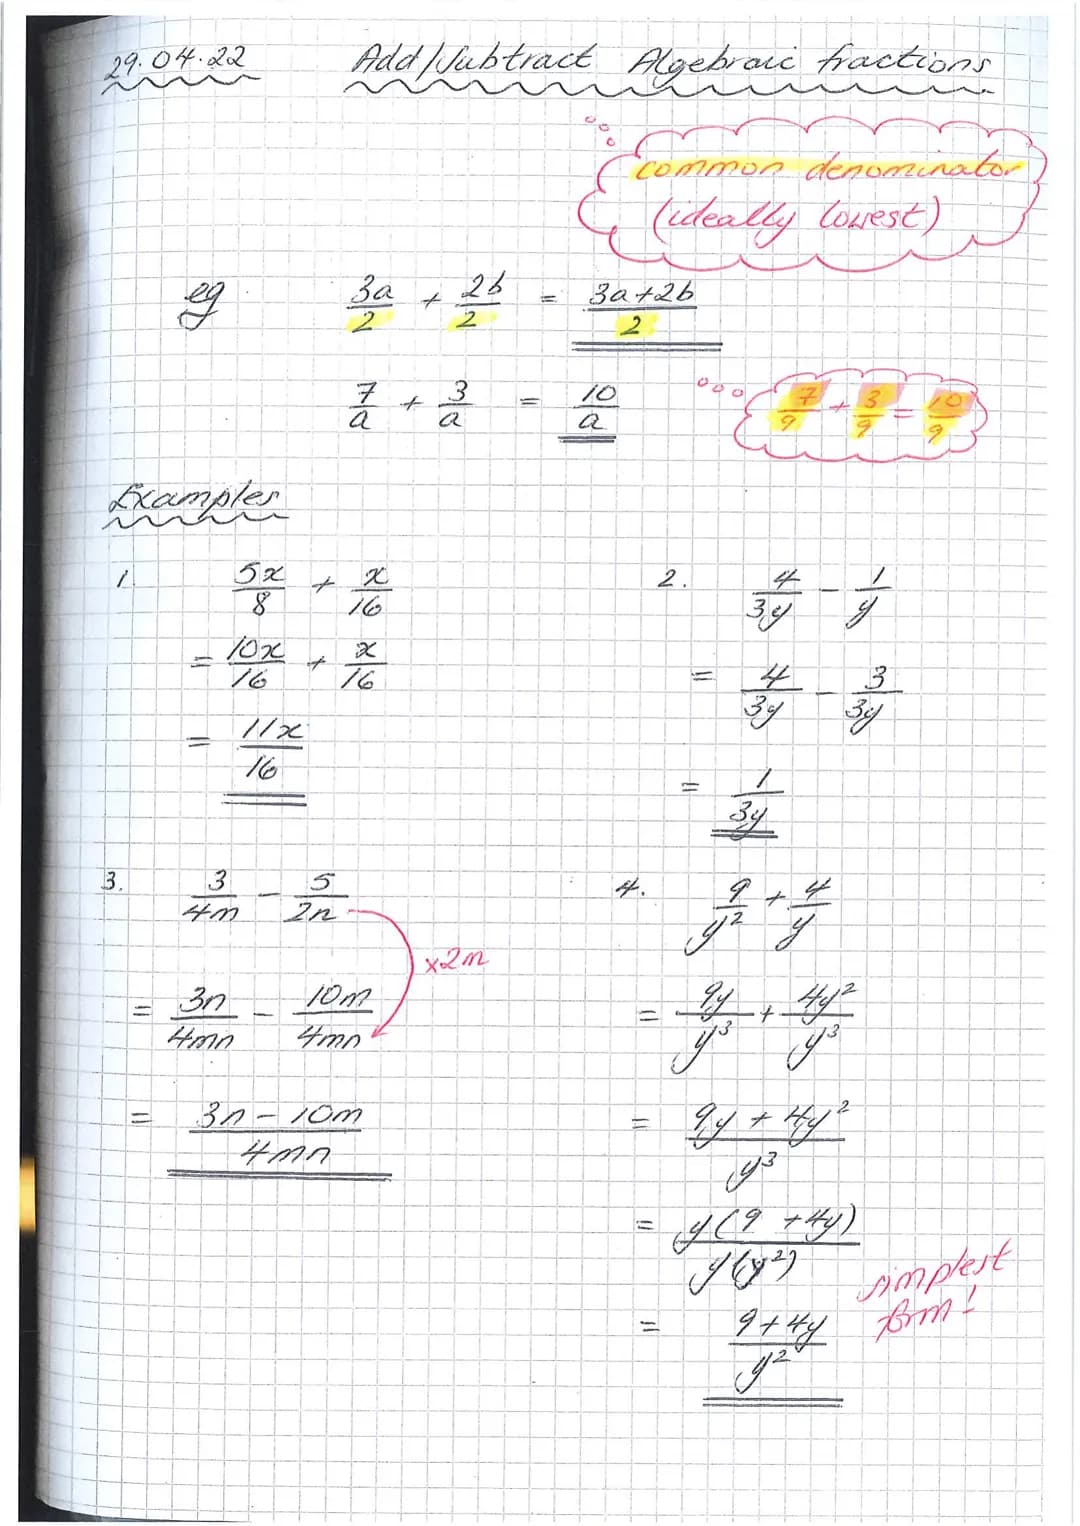 29.04.22 Add/Subtract Algebraic fractions
common denominator
(ideally lowest)
eg 3a/2 + 2b/2 = 3a+2b/2
7/a + 3/a = 10/a 7/9 + 3/9 = 10/9
Examples
1. 5x/8 + x/16
= 10x/16 + x/16
= 11x/16
2. 4/3y - 1/y
= 4/3y - 3/3y
= 1/3y
3. 3/4m - 5/2n
×2m
= 3n/4mn - 10m/4mn
= 3n - 10m/4mn
4. 9/y² + 4/y
= 9y/y³ + 4y²/y³
= 9y + 4y²/y³
= y(9 + 4y)/y(y²)
simplest
form!
= 9+4y/y²